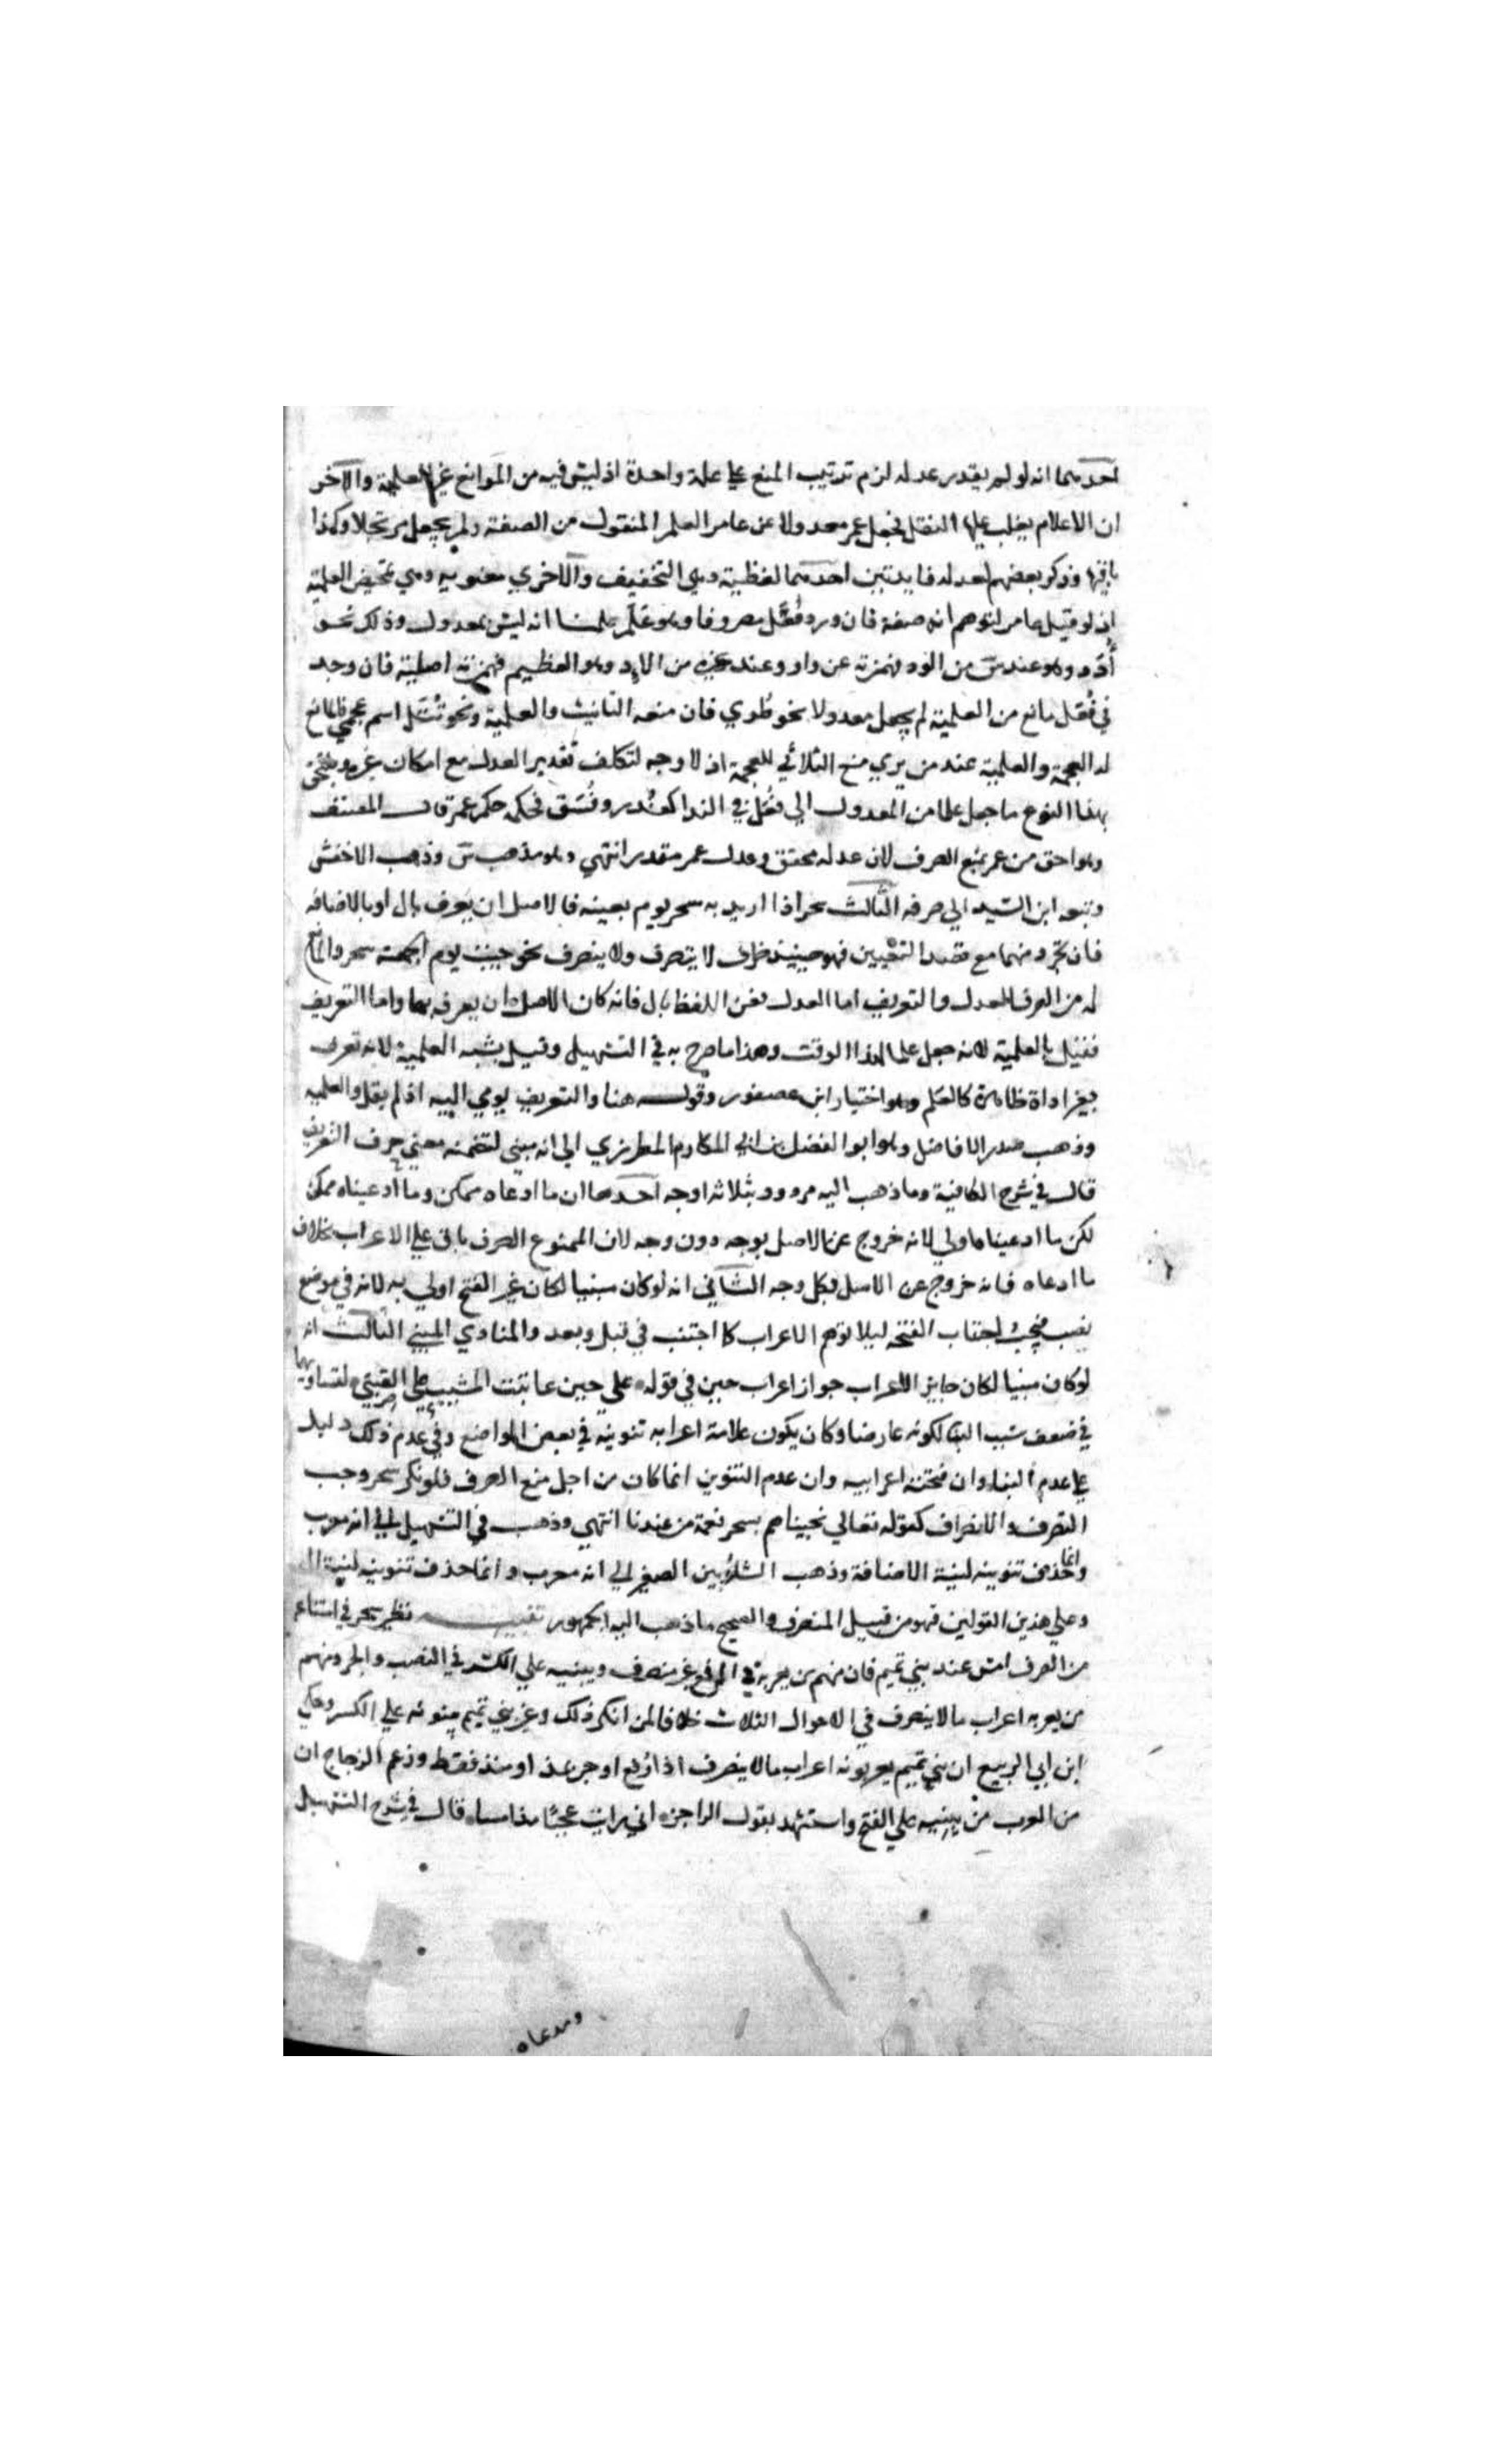 احدهما انه لو لم يقدر عدله لزم ترتيب المنع علي علة واحدة اذ ليس فيه من الموانع غير العلمية والآخر
ان الاعلام يغلب عليها النقل فجعل عمر معدولا عن عامر العلم المنقول من الصفة ولم يجعل مرتجلا وكذا
باقيها وذكر بعضهم لعدله فايدتين احدهما لفظية وهي التخفيف والاخري معنوية وهي تمحيض العلمية
اذ لو قيل عامر لتوهم انه صفة فان ورد فُعَل مصروفا وهو علم علمنا انه ليس بمعدول وذلك نحو
أُدَد وهو عند س من الود فهمزته عن واو وعند غيره من الاد وهو العظيم فهمزته اصلية فان وجد
في فُعَل مانع من العلمية لم يجعل معدولا نحو طُوي فان منعه التانيث والعلمية ونحو تُتَل اسم عجمي فالمانع
له العجمة والعلمية عند من يري منع الثلاثي للعجمة اذ لا وجه لتكلف تقدير العدل مع امكان غيره ويلتحق
بهذا النوع ما جعل علما من المعدول الي فُعَل في الندا كغُدَر وفُسَق فحكمه حكم عمر قال المصنف
وهو احق من عمر بمنع الصرف لان عدله محقق وعدل عمر مقدر انتهي وهو مذهب س وذهب الاخفش
وتبعه ابن السيد الي صرفه الثالث سحر اذا اريد به سحر يوم بعينه فالاصل ان يعرف بال او بالاضافه
فان تجرد منهما مع قصد التعيين فهو حينيذ ظرف لا يتصرف ولا ينصرف نحو جيت يوم الجمعة سحر والمانع
له من الصرف العدل والتعريف اما العدل فعن اللفظ بال فانه كان الاصل ان يعرف بها واما التعريف
فقيل بالعلمية لانه جعل علما لهذا الوقت وهذا ما صرح به في التسهيل وقيل بشبه العلمية لانه تعرف
بغير اداة ظاهرة كالعلم وهو اختيار ابن عصفور وقوله هنا والتعريف يومي اليه اذ لم يقل والعلميه
وذهب صدر الافاضل وهو ابو الفضل بن ابي المكارم المطرزي الي انه مبني لتضمنه معني حرف التعريف
قال في شرح الكافية وما ذهب اليه مردود بثلاثه اوجه احدها ان ما ادعاه ممكن وما ادعيناه ممكن
لكن ما ادعيناه اولي لانه خروج عن الاصل بوجه دون وجه لان الممنوع الصرف باق علي الاعراب بخلاف
ما ادعاه فانه خروج عن الاصل بكل وجه الثاني انه لو كان مبنيا لكان غير الفتح اولي به لانه في موضع
نصب فيجب اجتناب الفتحة ليلا يتوهم الاعراب كما اجتنب في قبل وبعد والمنادي المبني الثالث انه
لو كان مبنيا لكان جايز الاعراب جواز اعراب حين في قوله علي حين عاتبت المشيب علي الصبي لتساويهما
في ضعف سبب البنا لكونه عارضا وكان يكون علامة اعرابه تنوينه في بعض المواضع وفي عدم ذلك دليل
علي عدم البناء وان فتحته اعرابيه وان عدم التنوين انما كان من اجل منع الصرف فلو نكر سحر وجب
التصرف والانصراف كقوله تعالي نجيناهم بسحر نعمة من عندنا انتهي وذهب في التسهيل الي انه معرب
وانما حذف تنوينه لنية الاضافة وذهب الشلوبين الصغير الي انه معرب وانما حذف تنوينه لنية ال
وعلي هذين القولين فهو من قبيل المنصرف والصحيح ما ذهب اليه الجمهور تنبيه نظير سحر في امتناعه
من الصرف امس عند بني تميم فان منهم من يعربه في الرفع غير منصرف ويبنيه علي الكسر في النصب والجر ومنهم
من يعربه اعراب ما لا ينصرف في الاحوال الثلاث خلافا لمن انكر ذلك وغير بني تميم يبنونه علي الكسر وحكي
ابن ابي الربيع ان بني تميم يعربونه اعراب ما لا ينصرف اذا رفع او جر بمذ او منذ فقط وزعم الزجاج ان
من العرب من يبنيه علي الفتح واستشهد بقول الراجز اني رايت عجبًا مذ امسا قال في شرح التسهيل
ومدعاه